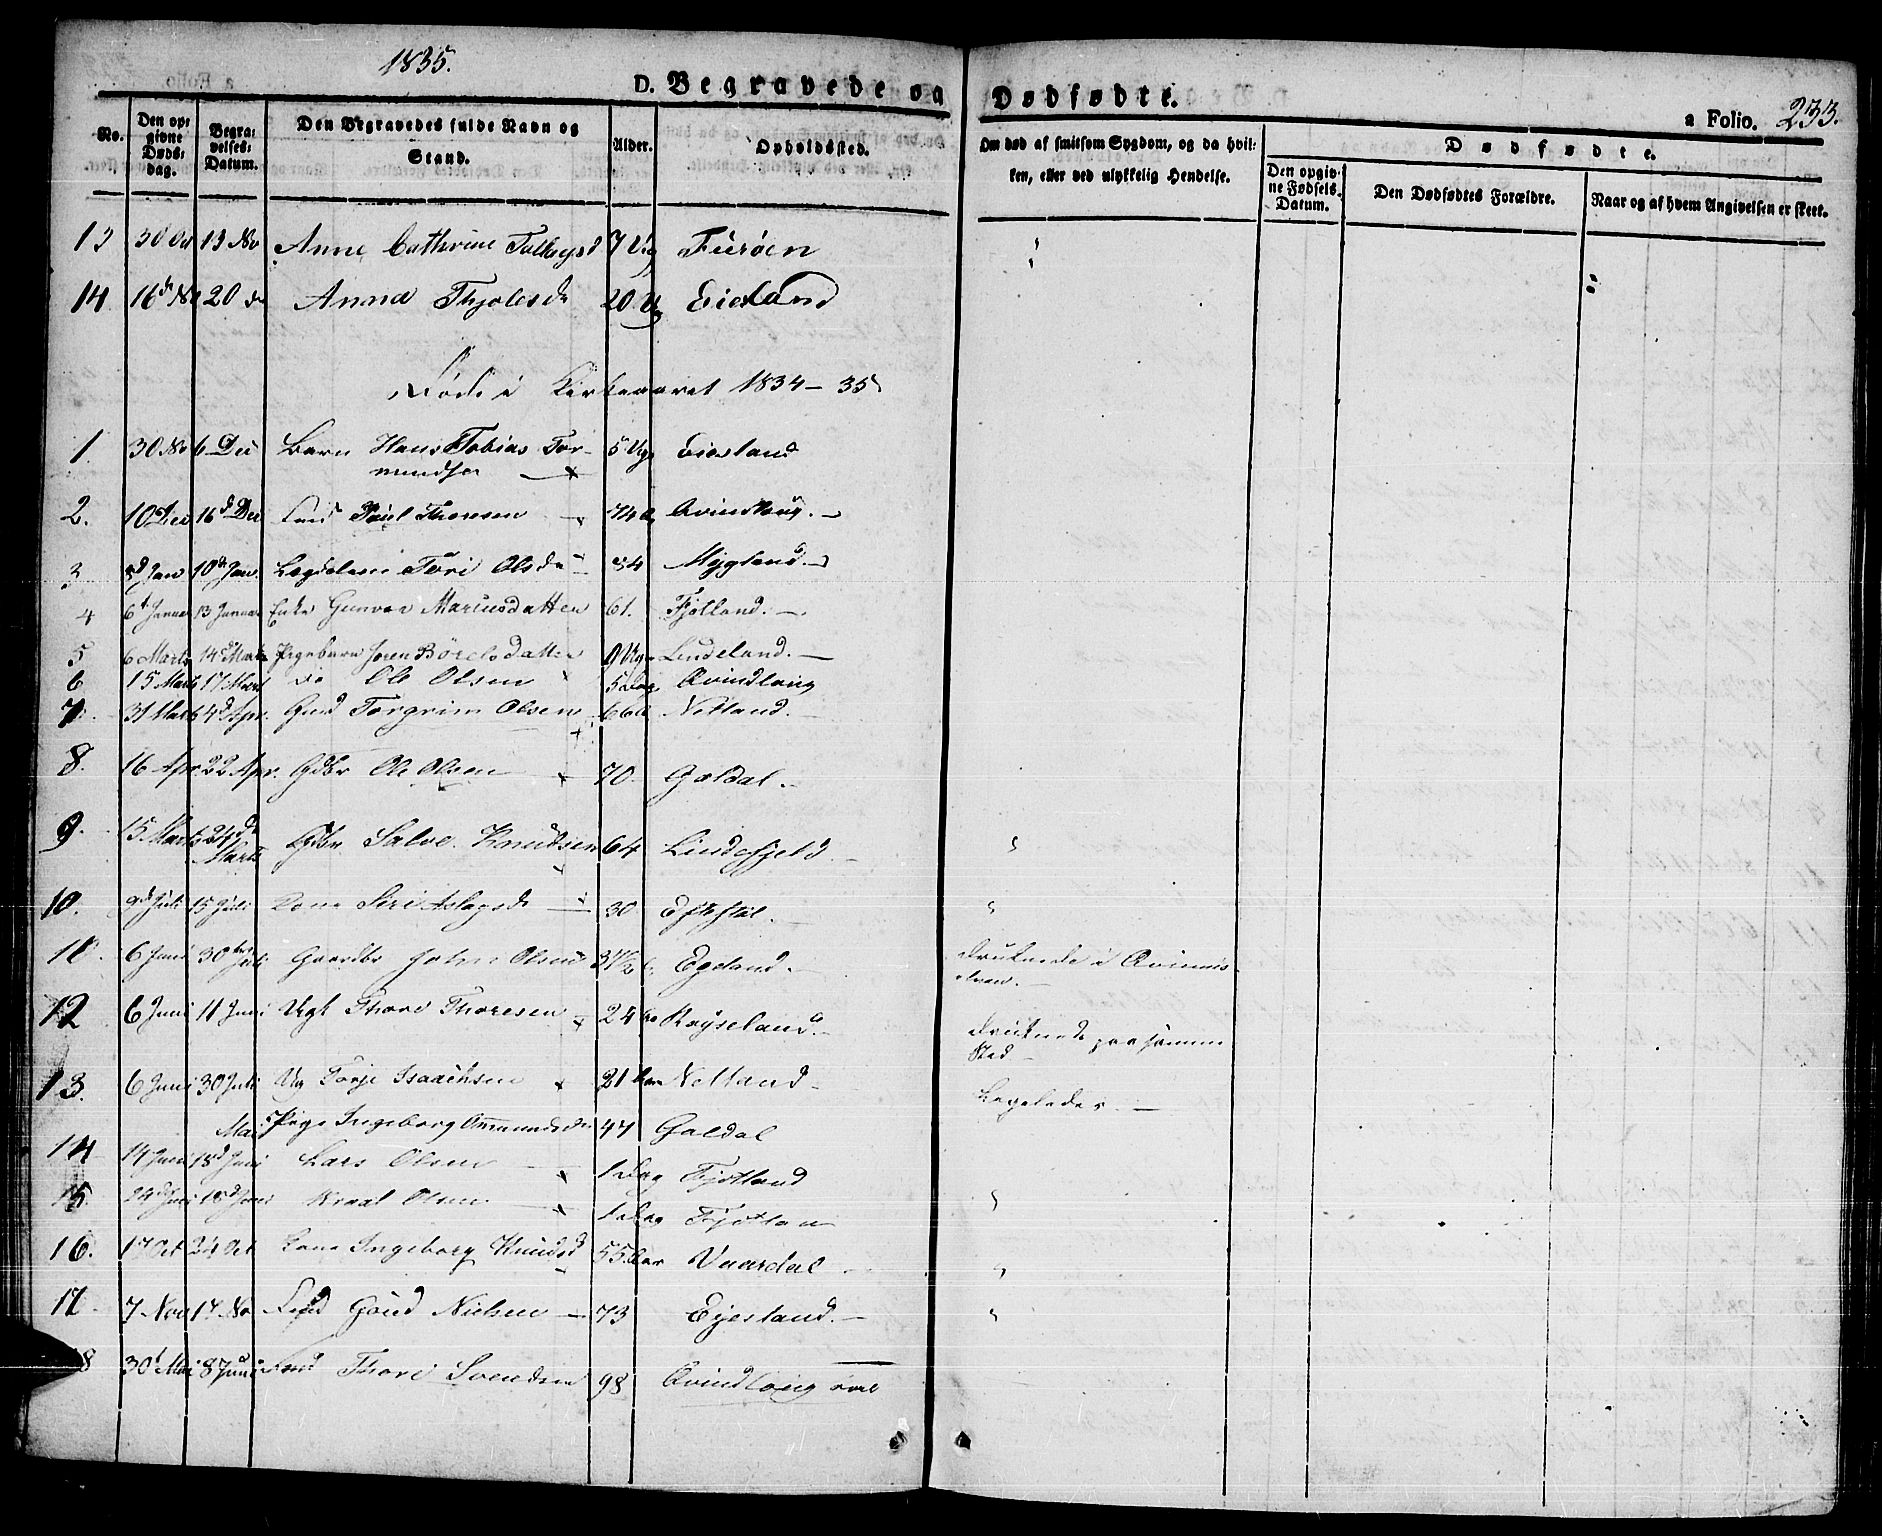 1835.
D. Begravede og Dødfødte.
a Folio. 233.
No.
Den opgivne Døds-dag.
Begravelses-Datum.
Den Begravedes fulde Navn og Stand.
Alder.
Opholdssted.
Om død af smitsom Sygdom, og da hvilken, eller ved ulykkelig Hendelse.
Dødfødte.
Den opgivne Fødsels-Datum.
Den Dødfødtes Forældre.
Naar og af hvem Angivelsen er skeet.
13 30 Oct 13 Nov Anne Cathrine 7 Ug
14. 16d Nov 20 do Anna 20 Ug Eieland
Døde i Kirkeaaret 1834-35
1. 30 Nov 6 Dec Barn Hans Tobias Tor-
mundsen 5 Ug Eiesland
2. 10 Dec 16d Dec Poul Thoresen 74 Qvindlaug.
3 Jan 10d Jan. Tori Olsd 84 Mygland.
4 6t Januar 13 Januar Enke Gunvor Mariusdatter 61. Fjotland.
5 6 Marts 14d Marts Pigebarn Børelsdatter 9 Uger Lindeland.
6 15 Marts 17 Marts do Ole Olsen 5 Dag Qvindlaug
7. 31 Marts 4d Apr. Torgrim Olsen 66 Netland.
8. 16 Apr. 22 Apr. Gdbr Ole Olsen 70. Galdal.
9. 15 Marts 24de Marts Gdbr Salve Knudsen 64 Lindefjeld.
10. 9d Juli 15 Juli Kone Siri Aslagsd 30 Eftestøl.
11. 6 Juni 30 Juli Gaardbr John Olsen 31 1/2 Egeland. druknede i
12 6 Juni 11 Juni Ugk Thore Thoresen 24 Røyseland. druknede paa samme
Sted
13. 6 Juni 30 Juli Ug Torje Isaachsen 21 Aar Netland Ligeledes.
Pige Ingeborg 47 Galdal
14 14 Juni 18d Juni Lars Olsen 1 Dag Fjotland
15. 14d Juni 18d Juni Olsen 1 Dag Fjotland
16. 17 Oct 24 Oct Kone Ingeborg Knudsd 55 Aar Vaardal
17. 7 Nov 14 Nov Nielsen 73 Eyesland.
18 30t Mai 8 Juni Thore Svendsen 98 Qvindlaug